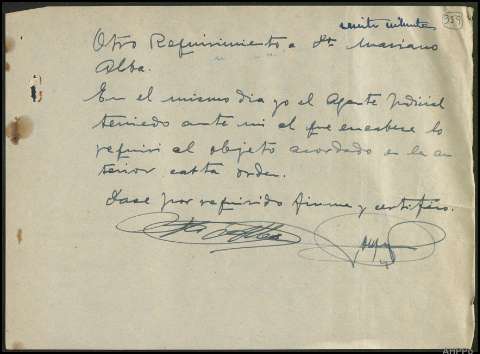 359
Otro Requirimiento a Dn Mariano
Alba.
En el mismo dia yo el Agente Judicial
teniedo ante mi al que encabese lo
requiri al objeto acordado en la an
terior carta orden.
Dase por requirido firma y certifico.
AHPPo